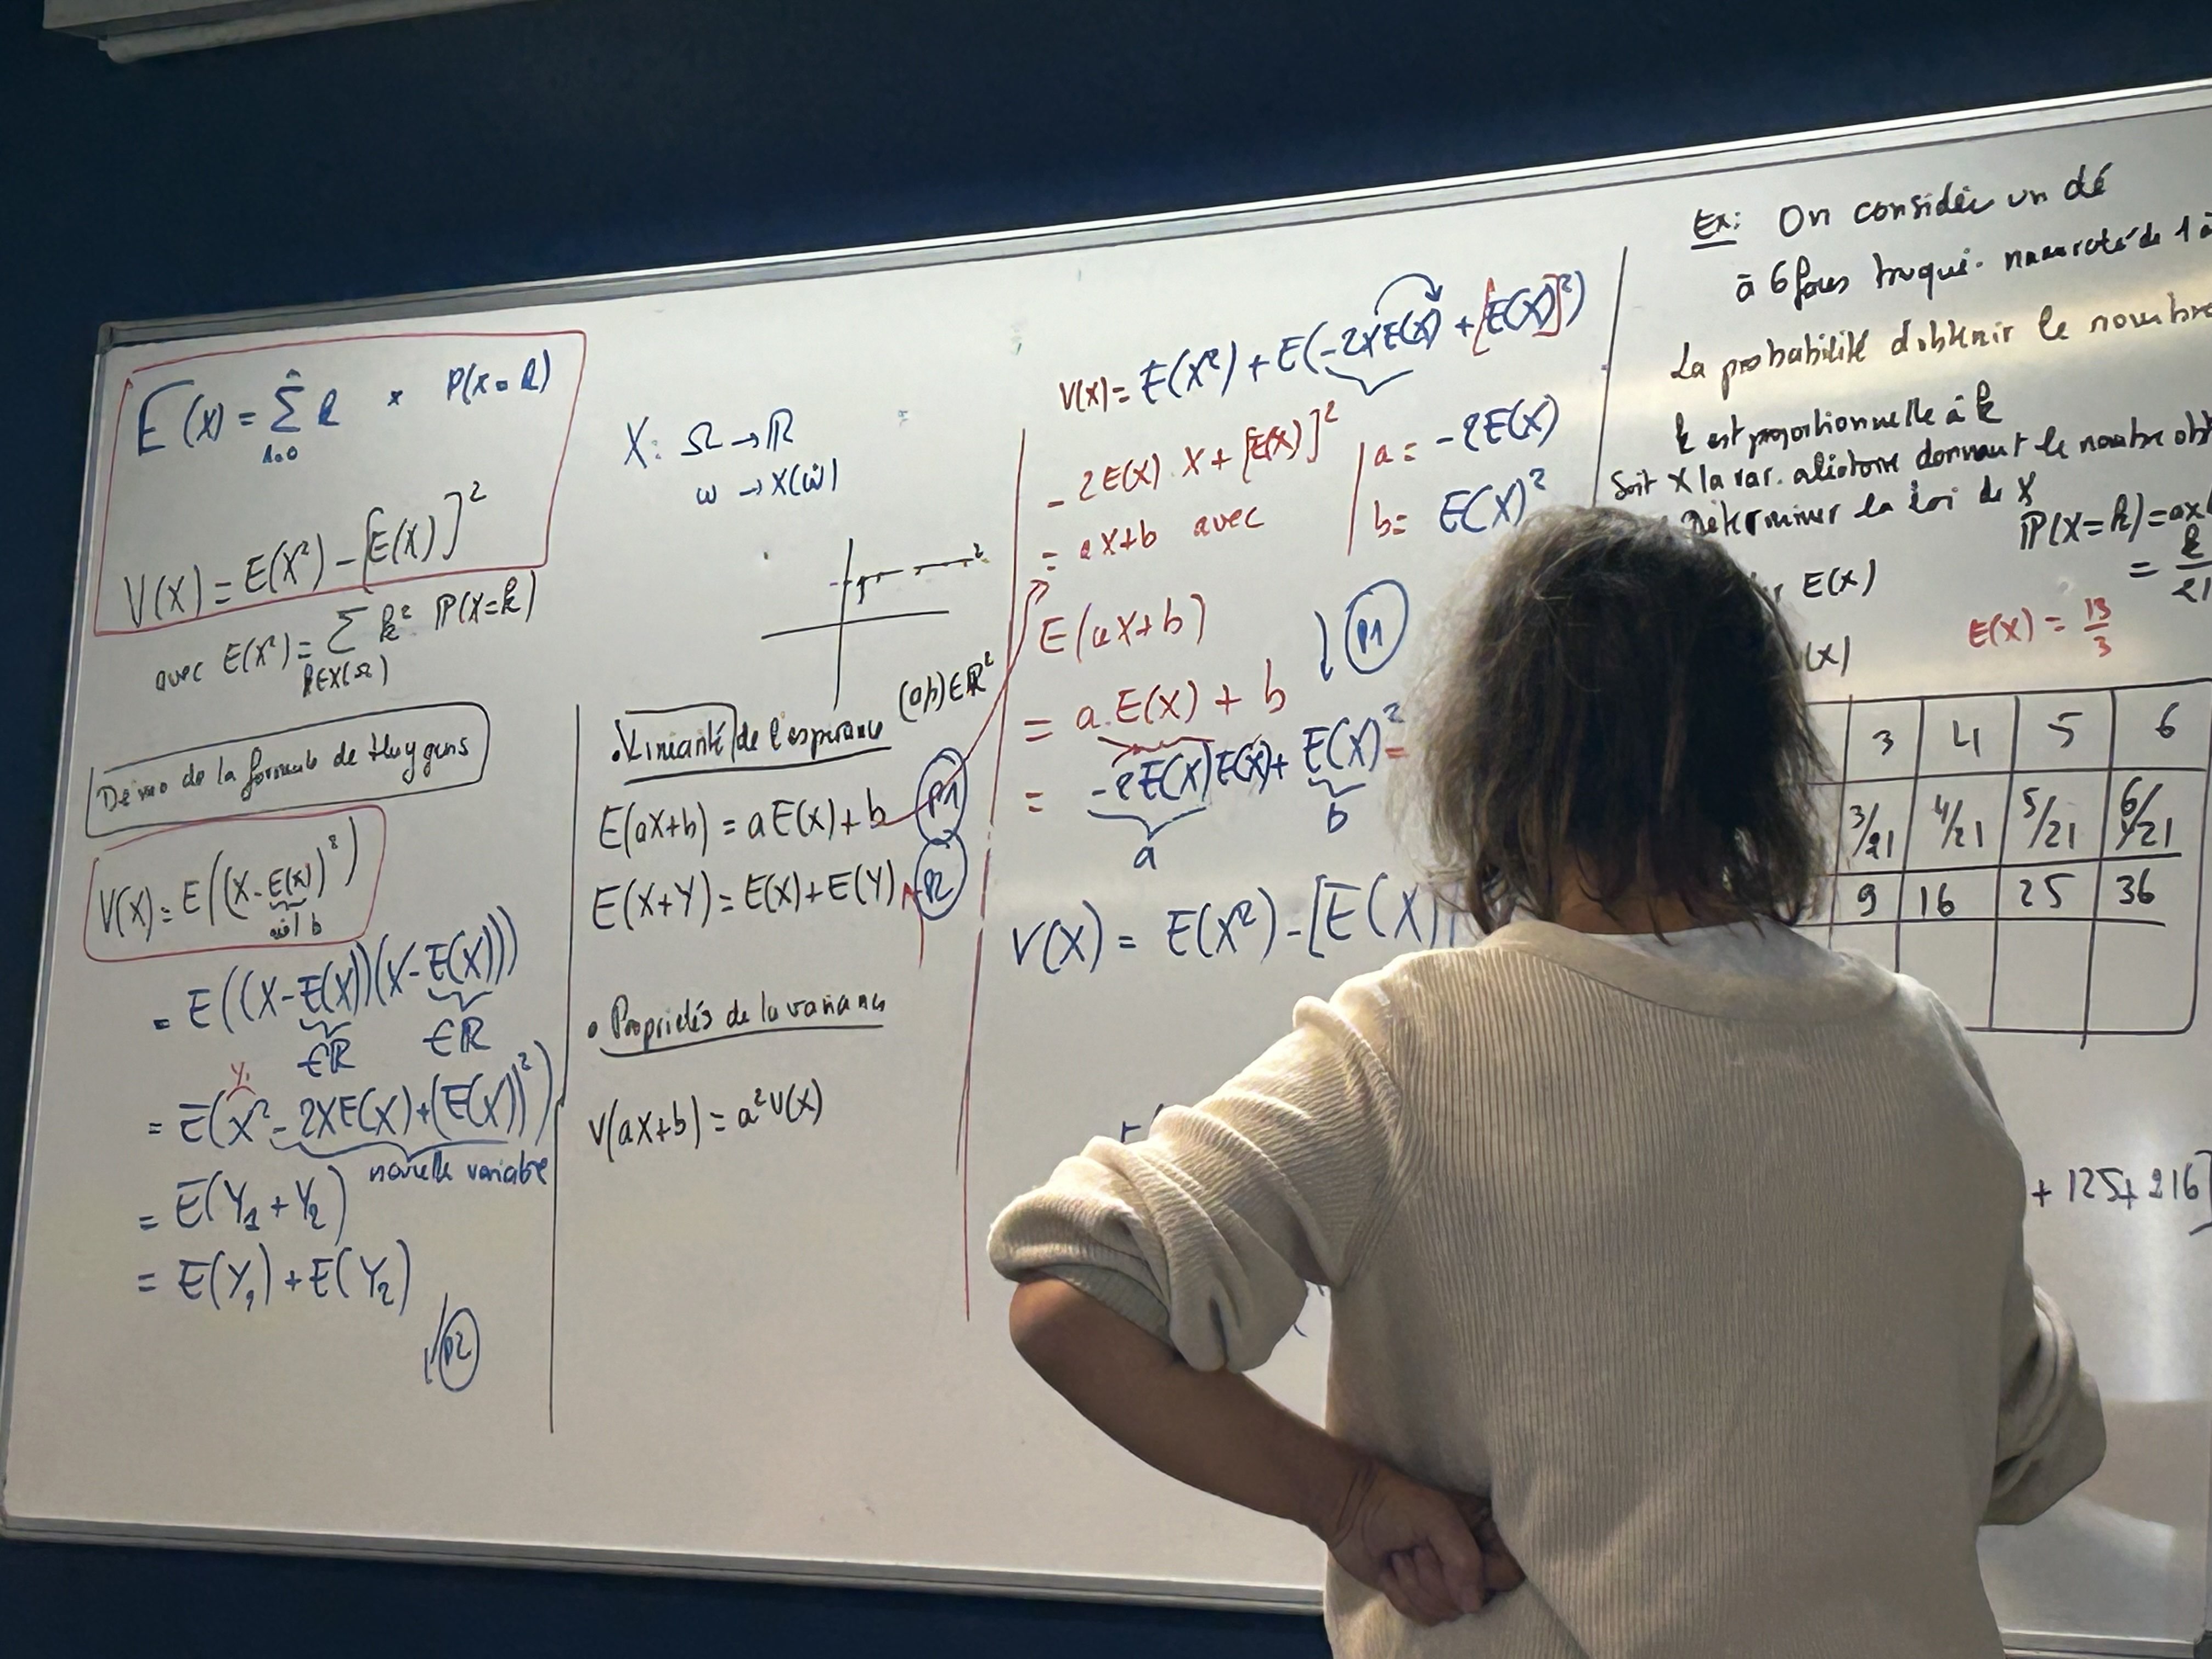 E(X) = Σ k × P(X=k)
V(X) = E(X²) - [E(X)]²
avec E(X²) = Σ k² P(X=k)
k∈X(Ω)
Démo de la formule de Huygens
V(X) = E((X - E(X))²)
= E((X-E(X))(X-E(X)))
∈ℝ ∈ℝ
= E(X² - 2XE(X) + (E(X))²)
Y₁
nouvelle variable
= E(Y₁ + Y₂)
= E(Y₁) + E(Y₂)
P2
X: Ω → ℝ
ω → X(ω)
• Linéarité de l'espérance (a,b)∈ℝ²
E(aX+b) = aE(X) + b P1
E(X+Y) = E(X) + E(Y) P2
• Propriétés de la variance
V(aX+b) = a²V(X)
V(X) = E(X²) + E(-2XE(X) + [E(X)]²)
- 2E(X) X + [E(X)]²
= aX+b avec
a = -2E(X)
b = E(X)²
E(aX+b)
P1
= a.E(X) + b
= -2E(X)E(X) + E(X)² =
a b
V(X) = E(X²) - [E(X)
Ex: On considère un dé
à 6 faces truqué numéroté de 1 à
La probabilité d'obtenir le nombre
k est proportionnelle à k
Soit X la var. aléatoire donnant le nombre
Déterminer la loi de X
P(X=k) = a×
= k/21
E(X)
E(X) = 13/3
(X)
3 4 5 6
3/21 4/21 5/21 6/21
9 16 25 36
+ 125 + 216]